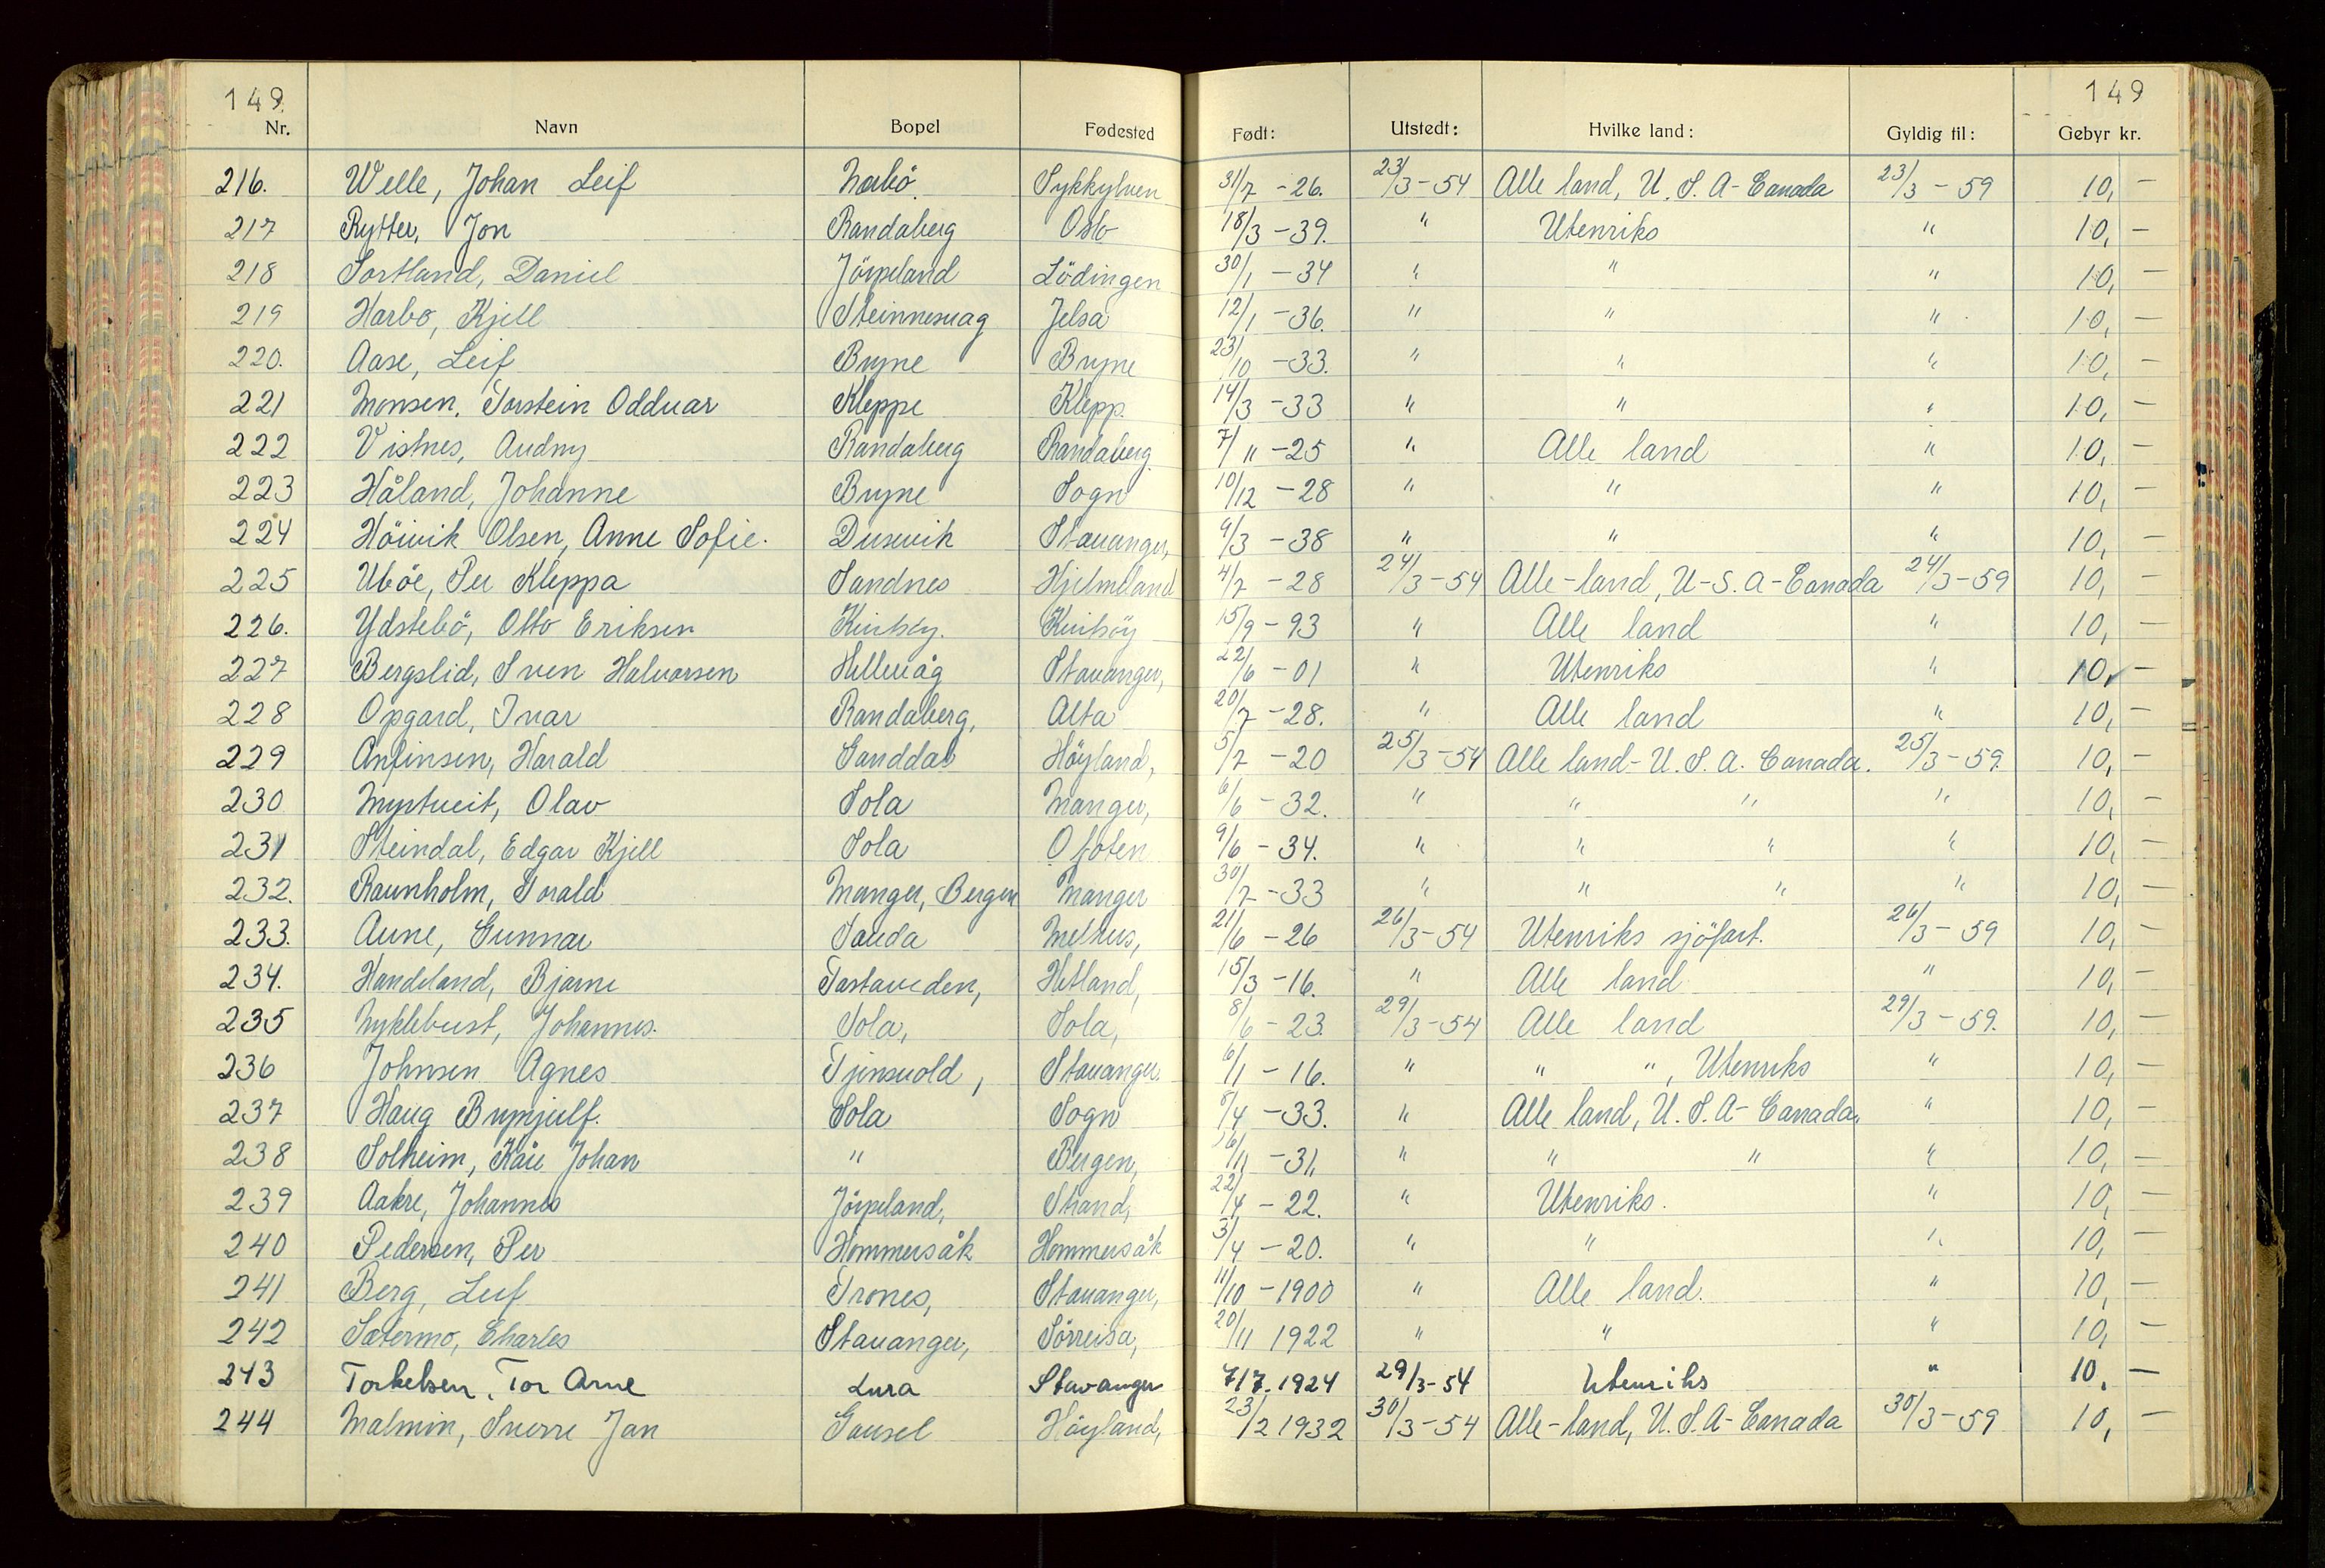 149. 149
Nr. Navn Bopel Fødested Født: Utstedt: Hvilke land: Gyldig til: Gebyr kr.
216. Welle, Johan Leif Nærbö Sykkylven 31/7 -26. 23/3-54 Alle land, U.S.A-Canada 23/3-59 10,-
217 Rytter, Jon Randaberg Oslo 18/3 -39. " Utenriks " 10,-
218 Sortland, Daniel Jörpeland Lödingen 30/1 -34 " " " 10,-
219 Harbo, Kjell Steinnesvag Jelsa 12/1 -36. " " " 10,-
220. Aase, Leif Bryne Bryne 23/10 -33. " " " 10,-
221 Monsen, Torstein Oddvar Kleppe Klepp. 14/3 -33 " " " 10,-
222 Vistnes, Audny Randaberg Randaberg 7/11 -25 " Alle land " 10,-
223 Håland, Johanne Bryne Sogn 10/12 -28 " " " 10,-
224 Höivik Olsen, Anne Sofie. Dusevik Stavanger, 9/3 -38 " " " 10,-
225 Uböe, Per Kleppa Sandnes Hjelmeland 4/7 -28 24/3-54 Alle-land, U-S.A-Canada 24/3-59 10,
226. Ydstebö, Otto Eriksen Kvitsöy 15/9 -93 " Alle land " 10,-
227 Bergslid, Sven Halvorsen Hillevåg Stavanger, 22/6 -01 " Utenriks " 10,-
228 Opgard, Ivar Randaberg, Alta 20/7 -28. " Alle land " 10,-
229 Anfinsen, Harald Ganddal Höyland, 5/7 -20 25/3-54 Alle land-U.S.A. Canada. 25/3-59. 10,-
230 Myrtveit, Olav Sola Manger, 6/6 -32. " " " " 10,-
231 Steindal, Edgar Kjell Sola Ofoten 9/6 -34. " " " " 10,-
232. Raunholm, Torald Manger, Bergen Manger 30/7 -33 " " " " 10,-
233. Aune, Gunnar Sauda Melhus, 21/6 -26 26/3-54 Utenriks sjöfart. 26/3-59 10,-
234. Handeland, Bjarne Tastaveden, Hetland, 15/3 -16. " Alle land " 10,-
235 Myklebust, Johannes. Sola, Sola, 8/6 -23 29/3-54 Alle land 29/3-59. 10,-
236 Johnsen Agnes Tjensvold, Stavanger. 6/1 -16. " " ", Utenriks " 10,-
237 Haug Brynjulf. Sola Sogn 8/4 -33. " Alle land, U.S.A-Canada, " 10,-
238 Solheim, Kåre Johan " Bergen, 16/11 -31, " " " " 10,-
239 Aakre, Johannes Jörpeland, Strand, 22/4 -22. " Utenriks. " 10,-
240 Pedersen, Per Hommersåk Hommersåk 3/4 -20. " " " 10,-
241 Berg, Leif Trones, Stavanger, 11/10 -1900 " Alle land. " 10,-
242 Sætermo, Charles Stavanger, Sörreisa, 20/11 1922 " " " 10,-
243 Torkelsen, Tor Arne Lura Stavanger 7/7.1924 29/3-54 Utenriks " 10,-
244 Malmin, Sverre Jan Gausel Höyland, 23/2 1932 30/3-54 Alle-land, U.S.A-Canada 30/3-59 10,-